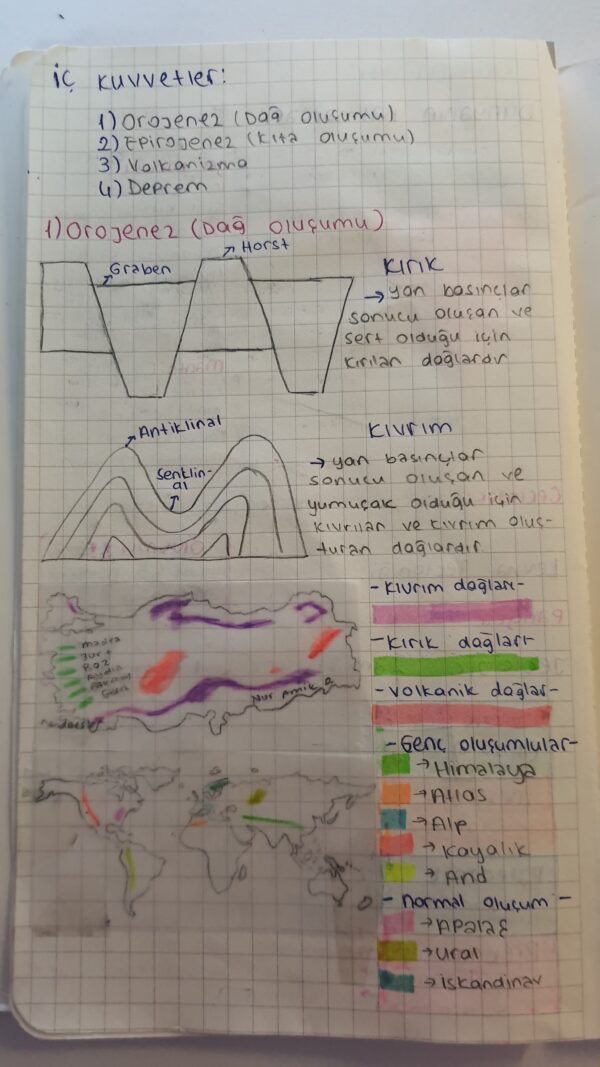 iç kuvvetler:
1) Orojenez (Dağ oluşumu)
2) Epirojenez (Kıta oluşumu)
3) Volkanizma
4) Deprem
1) Orojenez (Dağ oluşumu)
Horst
Graben
Kırık
→ yan basınçlar
sonucu oluşan ve
sert olduğu için
kırılan dağlardır
Antiklinal
Senklin-
al
Kıvrım
→ yan basınçlar
sonucu oluşan ve
yumuşak olduğu için
kıvrılan ve kıvrım oluş-
turan dağlardır
madra
Yunt
Boz
Aydın
Nur Amik
-Kıvrım dağları-
-Kırık dağları-
-Volkanik dağlar-
-Genç oluşumlular-
→Himalaya
→Atlas
→Alp
→Kayalık
→And
-normal oluşum-
→Apalaş
→Ural
→iskandinav